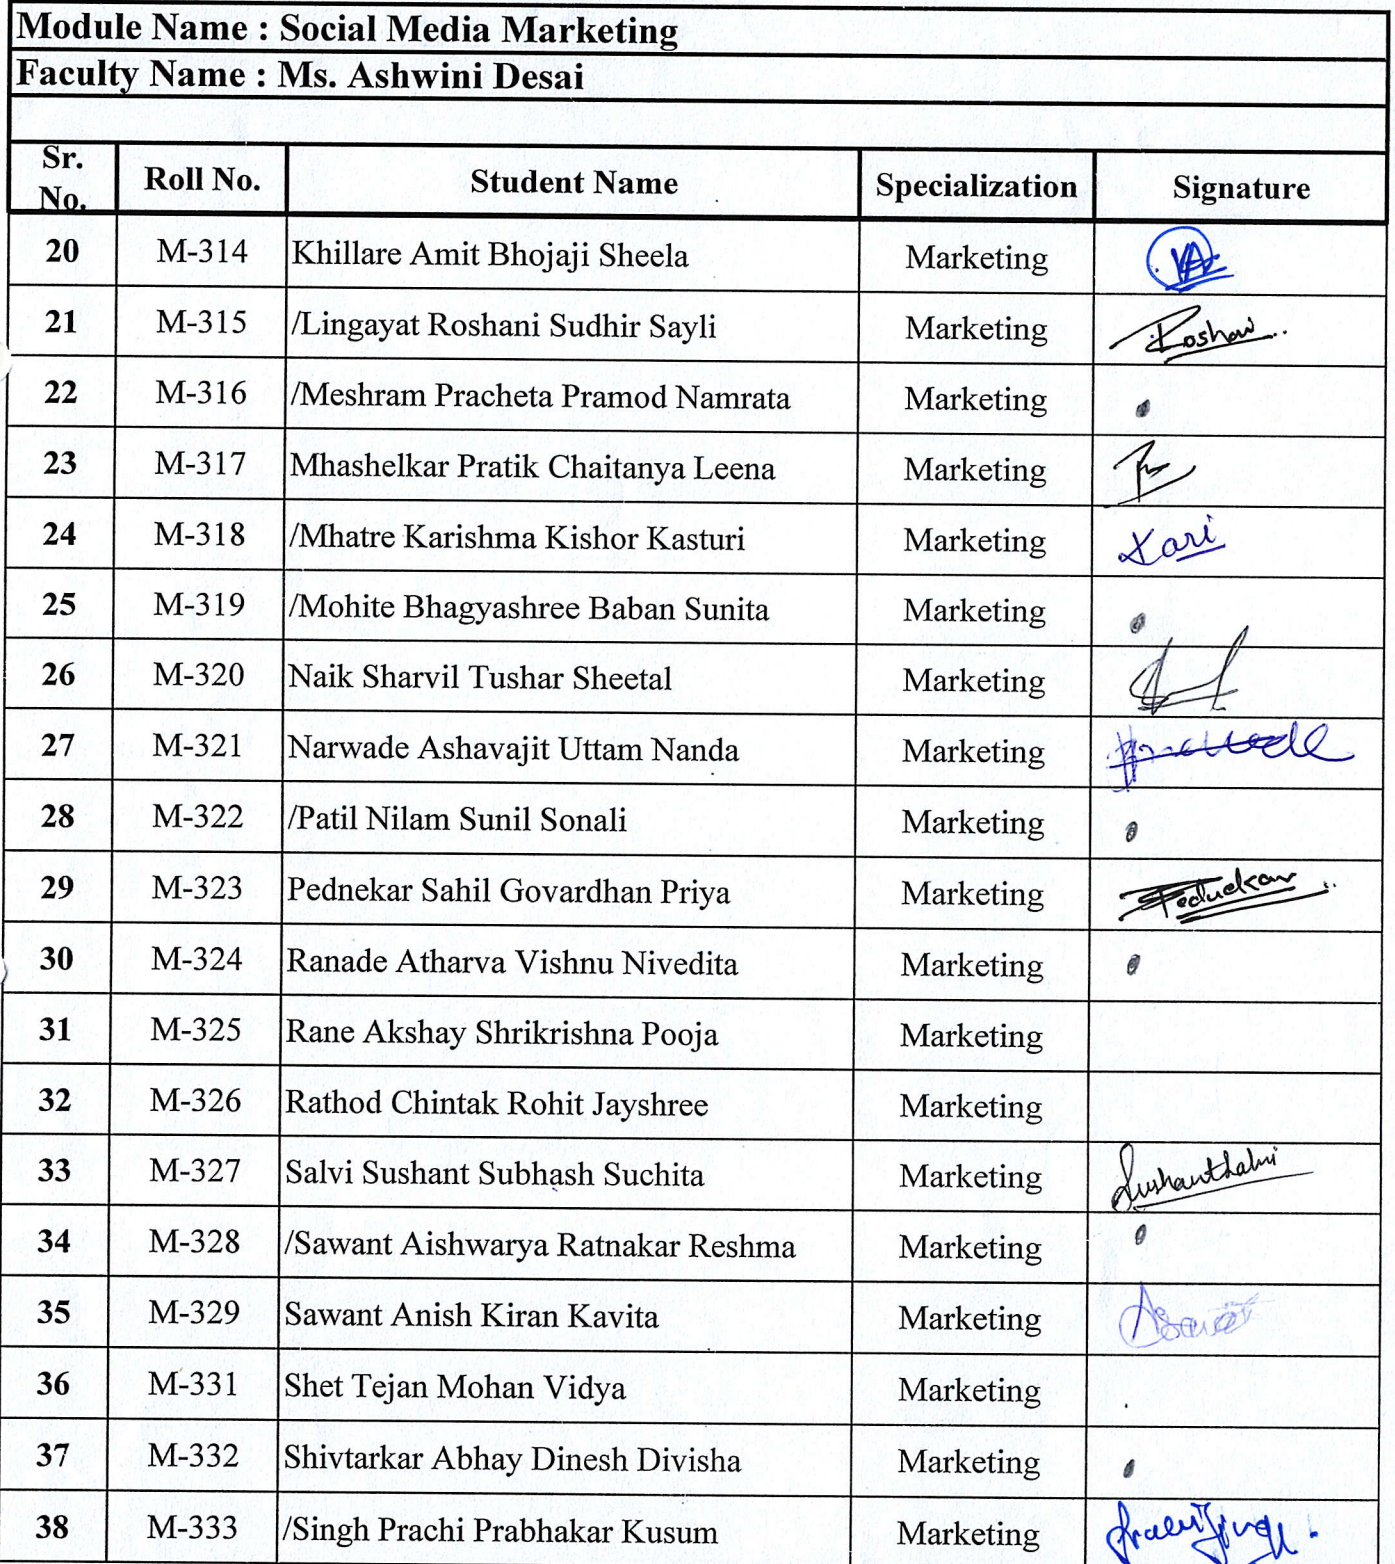 Module Name : Social Media Marketing
Faculty Name : Ms. Ashwini Desai
Sr. No. Roll No. Student Name Specialization Signature
20 M-314 Khillare Amit Bhojaji Sheela Marketing
21 M-315 /Lingayat Roshani Sudhir Sayli Marketing
22 M-316 /Meshram Pracheta Pramod Namrata Marketing
23 M-317 Mhashelkar Pratik Chaitanya Leena Marketing
24 M-318 /Mhatre Karishma Kishor Kasturi Marketing Kari
25 M-319 /Mohite Bhagyashree Baban Sunita Marketing
26 M-320 Naik Sharvil Tushar Sheetal Marketing
27 M-321 Narwade Ashavajit Uttam Nanda Marketing
28 M-322 /Patil Nilam Sunil Sonali Marketing
29 M-323 Pednekar Sahil Govardhan Priya Marketing Pednekar
30 M-324 Ranade Atharva Vishnu Nivedita Marketing
31 M-325 Rane Akshay Shrikrishna Pooja Marketing
32 M-326 Rathod Chintak Rohit Jayshree Marketing
33 M-327 Salvi Sushant Subhash Suchita Marketing
34 M-328 /Sawant Aishwarya Ratnakar Reshma Marketing
35 M-329 Sawant Anish Kiran Kavita Marketing
36 M-331 Shet Tejan Mohan Vidya Marketing
37 M-332 Shivtarkar Abhay Dinesh Divisha Marketing
38 M-333 /Singh Prachi Prabhakar Kusum Marketing